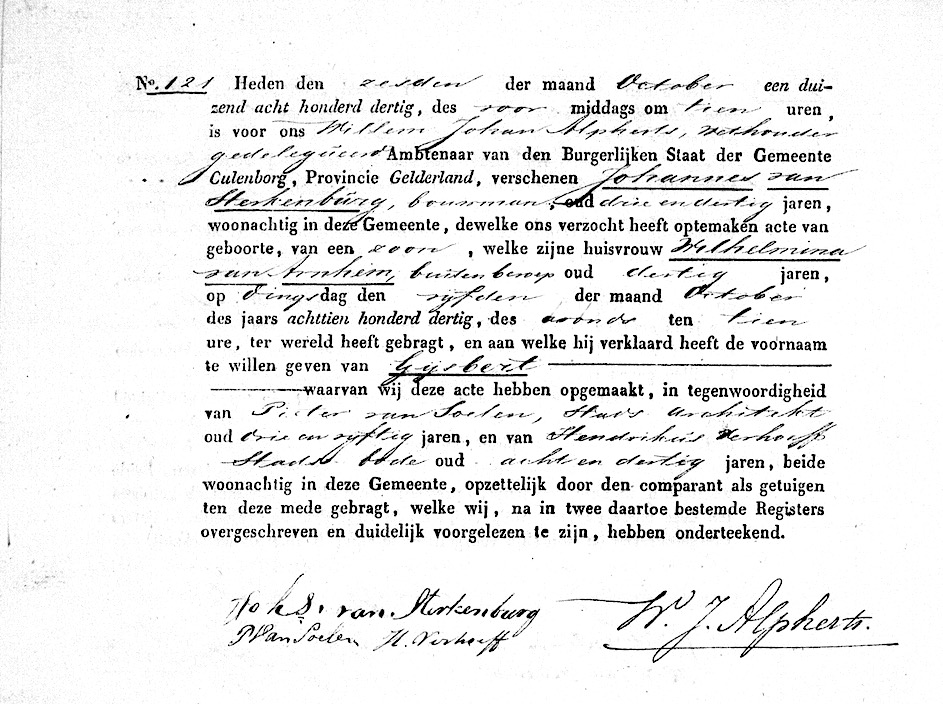 No. 121 Heden den zesden der maand October een dui-
zend acht honderd dertig, des voor middags om tien uren,
is voor ons Willem Johan Alpherts, wethouder
gedelegueerd Ambtenaar van den Burgerlijken Staat der Gemeente
Culenborg, Provincie Gelderland, verschenen Johannes van
Sterkenburg, bouwman, oud drie en dertig jaren,
woonachtig in deze Gemeente, dewelke ons verzocht heeft optemaken acte van
geboorte, van een zoon, welke zijne huisvrouw Wilhelmina
van Arnhem, buiten beroep oud dertig jaren,
op Dingsdag den vyfden der maand October
des jaars achttien honderd dertig, des avonds ten tien
ure, ter wereld heeft gebragt, en aan welke hij verklaard heeft de voornaam
te willen geven van Gysbert
waarvan wij deze acte hebben opgemaakt, in tegenwoordigheid
van Pieter van Soelen, Stads architekt
oud drie en vyftig jaren, en van Hendrikus Verhoeff
Stads bode oud acht en dertig jaren, beide
woonachtig in deze Gemeente, opzettelijk door den comparant als getuigen
ten deze mede gebragt, welke wij, na in twee daartoe bestemde Registers
overgeschreven en duidelijk voorgelezen te zijn, hebben onderteekend.
Johs. van Sterkenburg
W. J. Alpherts.
P Van Soelen H. Verhoeff